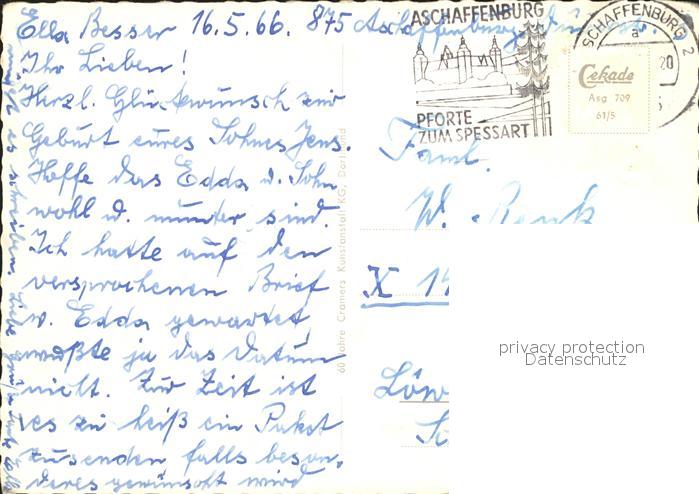 Ella Besser 16.5.66. 875 Aschaffenburg
Ihr Lieben!
Herzl. Glückwunsch zur
Geburt eures Sohnes Jens.
Hoffe das Edda u. Sohn
wohl u. munter sind.
Ich hatte auf den
versprochenen Brief
v. Edda gewartet
wußte ja das Datum
nicht. Zur Zeit ist
es zu heiß ein Paket
zusenden falls beson-
deres gewünscht wird
es schreiben Liebe Grüße
60 Jahre Cramers Kunstanstalt KG, Dortmund
ASCHAFFENBURG
PFORTE
ZUM SPESSART
SCHAFFENBURG 2
a
20
Cekade
Asg 709
61/5
Faml.
W. Renk
X 14
Löw
privacy protection
Datenschutz